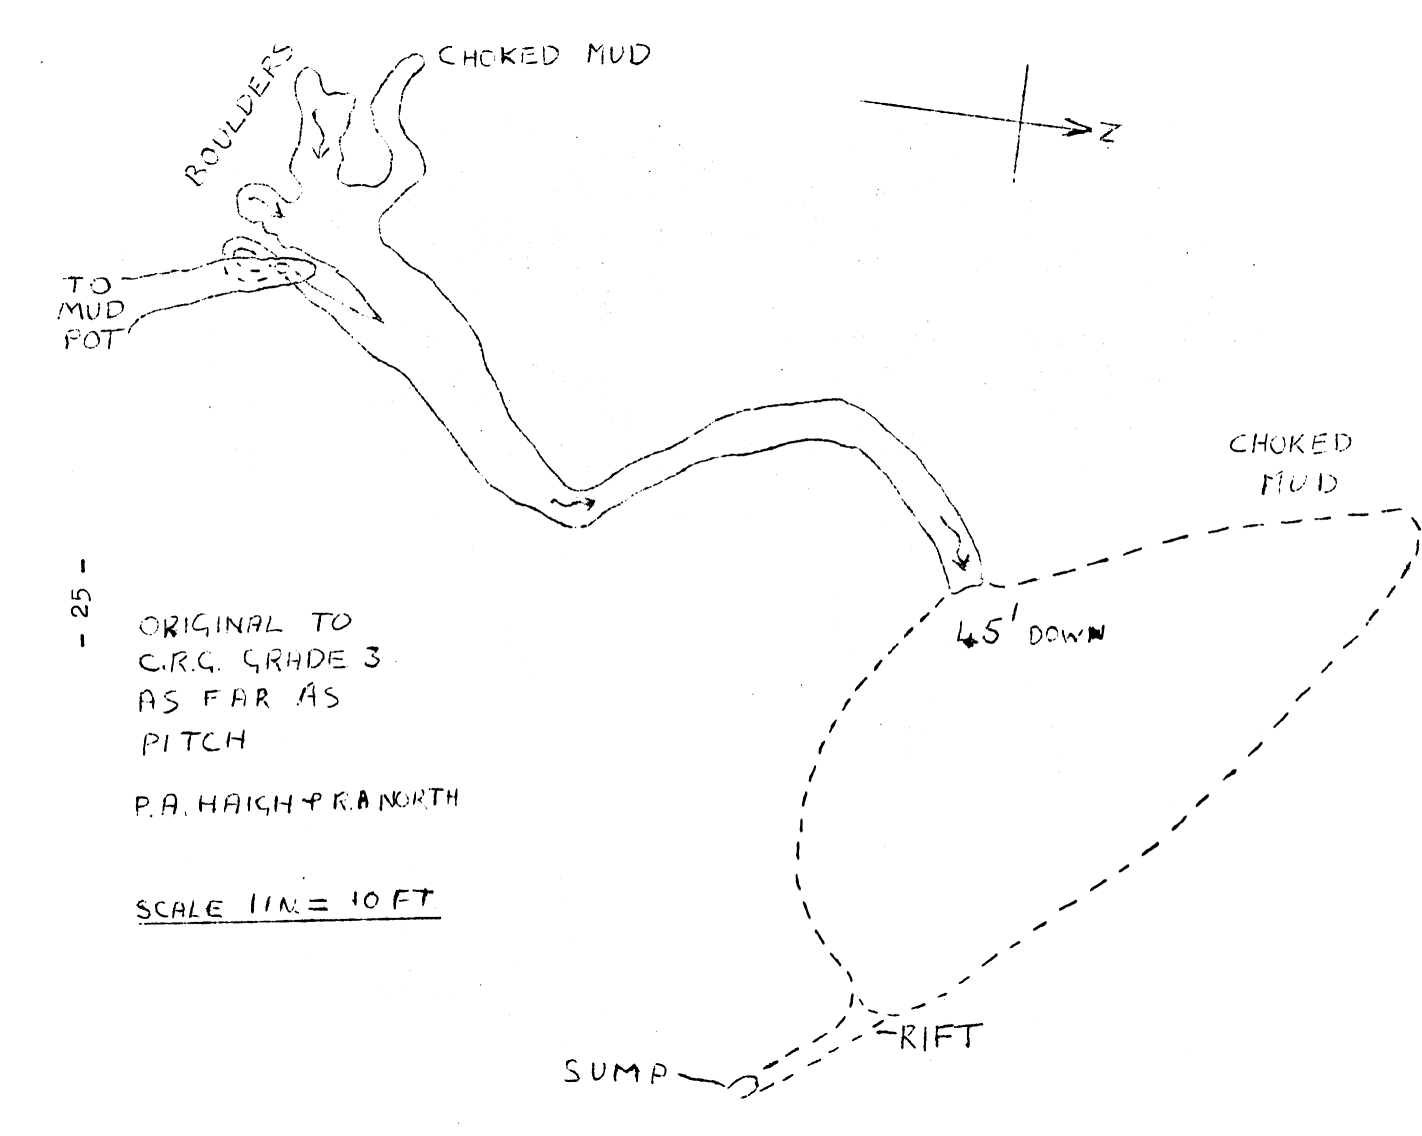 CHOKED MUD
BOULDERS
N
TO
MUD
POT
CHOKED
MUD
45' DOWN
- 25 -
ORIGINAL TO
C.R.G. GRADE 3
AS FAR AS
PITCH
P.A. HAIGH & R.A NORTH
SCALE 1 IN = 10 FT
RIFT
SUMP